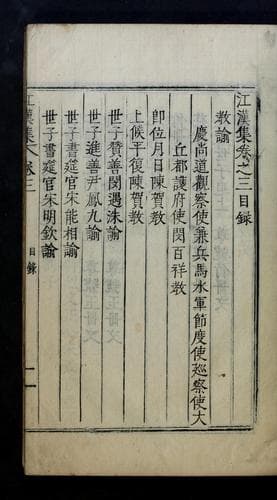 江漢集卷之三目錄
敎諭
慶尚道觀察使兼兵馬水軍節度使廵察使大
丘都護府使閔百祥敎
卽位月日陳賀敎
上候平復陳賀敎
世子贊善閔遇洙諭
世子進善尹鳳九諭
世子書筵官宋能相諭
世子書筵官宋明欽諭
江漢集 卷三
目錄
一